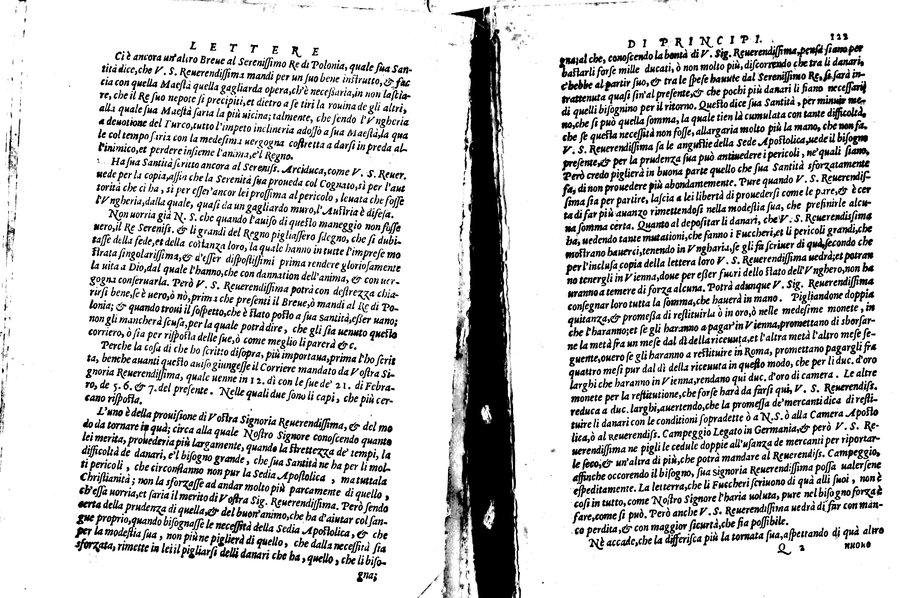 LETTERE
Ci è ancora un'altro Breue al Serenissimo Re di Polonia, quale sua San-
tità dice, che V. S. Reuerendissima mandi per un suo bene instrutto, & fac
cia con quella Maestà quella gagliarda opera, ch'è necessaria, in non lascia-
re, che il Re suo nepote si precipiti, et dietro a se tiri la rouina de gli altri,
alla quale sua Maestà saria la più uicina; talmente, che sendo l'Vngheria
a deuotione del Turco, tutto l'impeto inclineria adosso a sua Maestà, la qua
le col tempo saria con la medesima uergogna costretta a darsi in preda al-
l'inimico, et perdere insieme l'anima, e'l Regno.
Ha sua Santità scritto ancora al Sereniss. Arciduca, come V. S. Reuer.
uede per la copia, assin che la Serenità sua proueda col Cognato, sì per l'aut
torità che ci ha, sì per esser' ancor lei prossima al pericolo, leuata che fosse
l'Vngheria, dalla quale, quasi da un gagliardo muro, l'Austria è difesa.
Non uorria già N. S. che quando l'auiso di questo maneggio non fusse
uero, il Re Sereniss. & li grandi del Regno pigliassero sdegno, che si dubi-
tasse della fede, et della costanza loro, la quale hanno in tutte l'imprese mo
strata singolarissima, & d'esser dispostissimi prima rendere gloriosamente
la uita a Dio, dal quale l'hanno, che con dannation dell'anima, & con uer-
gogna conseruarla. Però V. S. Reuerendissima potrà con destrezza chia-
rirsi bene, se è uero, ò nò, prima che presenti il Breue, ò mandi al Re di Po-
lonia; & quando troui il sospetto, che è stato posto a sua Santità, esser uano;
non gli mancherà scusa, per la quale potrà dire, che gli sia uenuto questo
corriero, ò sia per risposta delle sue, ò come meglio li parerà &c.
Perche la cosa di che ho scritto disopra, più importaua, prima l'ho scrit
ta, benche auanti questo auiso giungesse il Corriere mandato da Vostra Si-
gnoria Reuerendissima, quale uenne in 12. dì con le sue de' 21. di Febra-
ro, de 5. 6. & 7. del presente. Nelle quali due sono li capi, che più cer-
cano risposta.
L'uno è della prouisione di Vostra Signoria Reuerendissima, & del mo
do da tornare in quà; circa alla quale Nostro Signore conoscendo quanto
lei merita, prouederia più largamente, quando la strettezza de' tempi, la
difficoltà de danari, e'l bisogno grande, che sua Santità ne ha per li mol-
ti pericoli, che circonstanno non pur la Sedia Apostolica, ma tutta la
Christianità; non la sforzasse ad andar molto più parcamente di quello,
ch'essa uorria, et saria il merito di Vostra Sig. Reuerendissima. Però sendo
certa della prudenza di quella, & del buon'animo, che ha d'aiutar col san-
gue proprio, quando bisognasse le necessità della Sedia Apostolica, & che
per la modestia sua, non più ne piglierà di quello, che dalla necessità sia
sforzata, rimette in lei il pigliarsi delli danari che ha, quello, che li biso-
gna;
DI PRINCIPI. 122
gna; al che, conoscendo la bontà di V. Sig. Reuerendissima, pensa siano per
bastarli forse mille ducati, ò non molto più, discorrendo che tra li danari,
c'hebbe al partir suo, & tra le spese hauute dal Serenissimo Re, si sarà in-
trattenuta quasi sin'al presente, & che pochi più danari li siano necessarij
di quelli bisognino per il ritorno. Questo dice sua Santità, per minuir me-
no, che si può quella somma, la quale tien là cumulata con tante difficoltà,
che se questa necessità non fosse, allargaria molto più la mano, che non fa.
V. S. Reuerendissima sa le angustie della Sede Apostolica, uede il bisogno
presente, & per la prudenza sua può antiuedere i pericoli, ne' quali siamo.
Però credo piglierà in buona parte quello che sua Santità sforzatamente
fa, di non prouedere più abondantemente. Pure quando V. S. Reuerendis-
sima sia per partire, lascia a lei libertà di prouedersi come le pare, & è cer
ta di far più auanzo rimettendosi nella modestia sua, che prefinirle alcu-
na somma certa. Quanto al depositar li danari, che V. S. Reuerendissima
ha, uedendo tante mutationi, che fanno i Fuccheri, et li pericoli grandi, che
mostrano hauerci, tenendo in Vngharia, se gli fa scriuer di quà, secondo che
per l'inclusa copia della lettera loro V. S. Reuerendissima uedrà; et potran
no tenergli in Vienna, doue per esser fuori dello stato dell'Vnghero, non ha
uranno a temere di forza alcuna. Potrà adunque V. Sig. Reuerendissima
consegnar loro tutta la somma, che hauerà in mano. Pigliandone doppia
quitanza, & promessa di restituirla ò in oro, ò nelle medesime monete, in
che l'haranno; et se gli haranno a pagar' in Vienna, promettano di sborsar-
ne la metà fra un mese dal dì della riceuuta, et l'altra metà l'altro mese se-
guente, ouero se gli haranno a restituire in Roma, promettano pagargli fra
quattro mesi pur dal dì della riceuuta in questo modo, che per li duc. d'oro
larghi che haranno in Vienna, rendano qui duc. d'oro di camera. Le altre
monete per la restitutione, che forse harà da farsi qui, V. S. Reuerendiss.
reduca a duc. larghi, auertendo, che la promessa de' mercanti dica di resti-
tuire li danari con le conditioni sopradette ò a N.S. ò alla Camera Aposto
lica, ò al Reuerendiss. Campeggio Legato in Germania, & però V. S. Re-
uerendissima ne pigli le cedule doppie all'usanza de mercanti per riportar-
le seco, & un'altra di più, che potrà mandare al Reuerendiss. Campeggio,
affinche occorendo il bisogno, sua Signoria Reuerendissima possa ualersene
espeditamente. La letterra, che li Fuccheri scriuono di quà alli suoi, non è
così in tutto, come Nostro Signore l'haria uoluta, pure nel bisogno forza è
fare, come si può. Però anche V. S. Reuerendissima uedrà di far con man-
co perdita, & con maggior sicurtà, che sia possibile.
Nè accade, che la differisca più la tornata sua, aspettando di quà altro
Q 2 nuouo